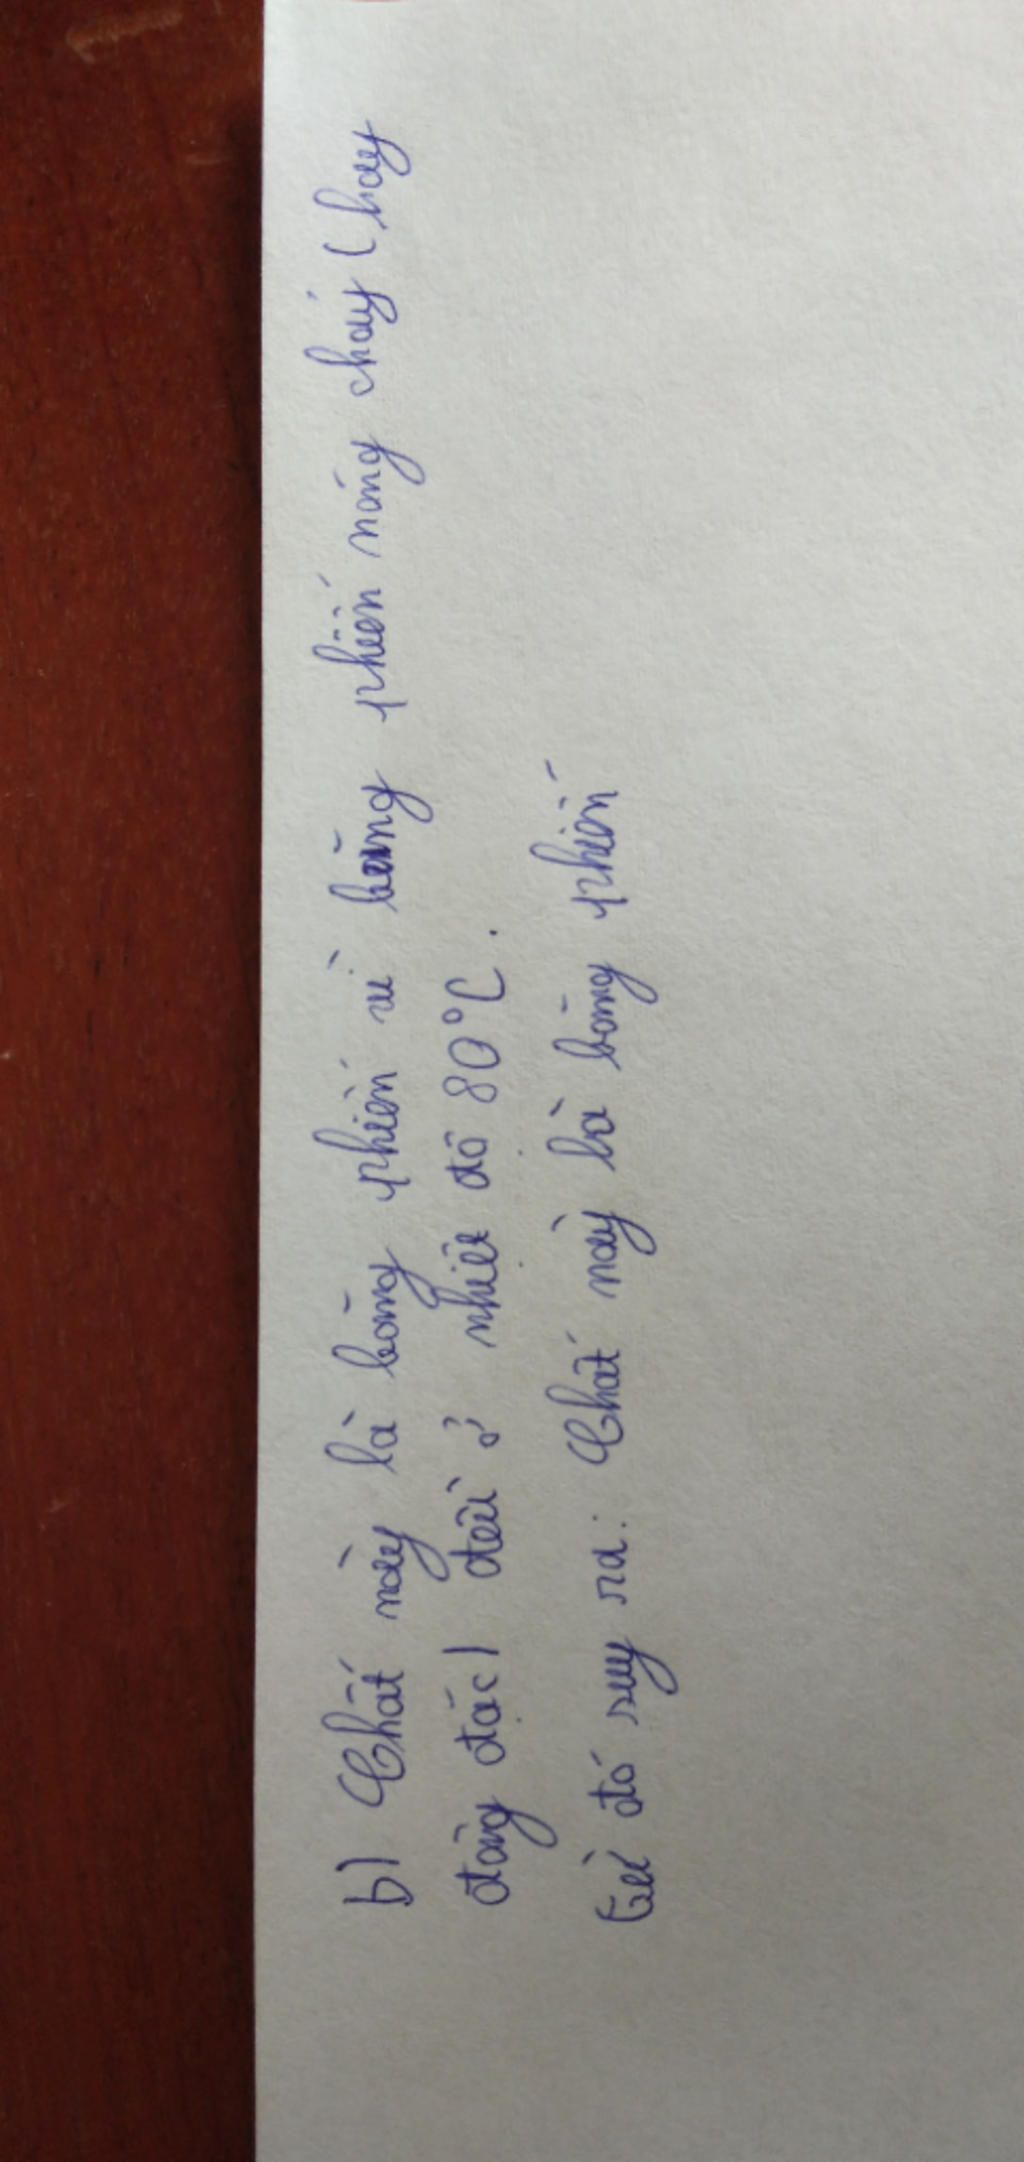 b) Chất này là băng phiến vì băng phiến nóng chảy (hay
đông đặc) đều ở nhiệt độ 80°C.
Từ đó suy ra: Chất này là băng phiến